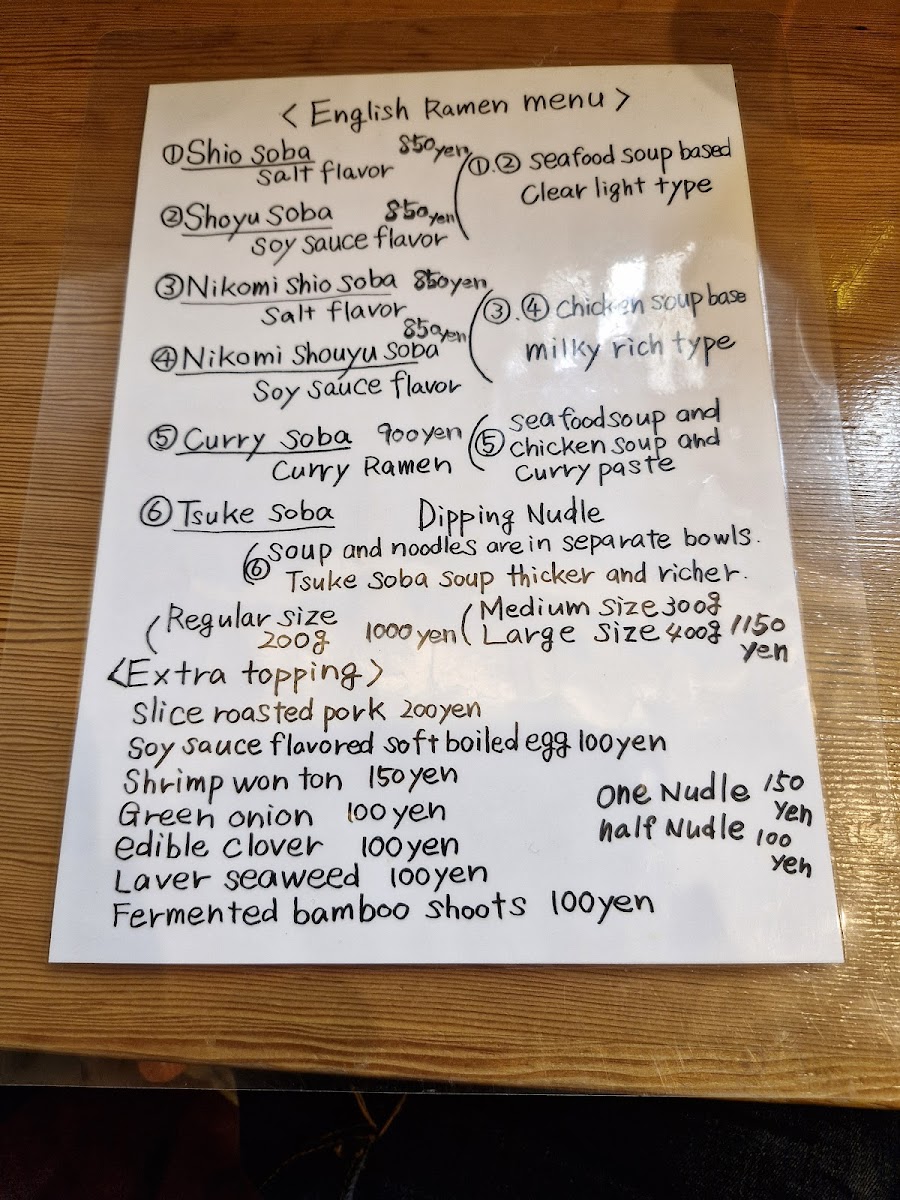 < English Ramen menu >
①Shio soba 850yen
salt flavor
②Shoyu soba 850yen
soy sauce flavor
①.② seafood soup based
Clear light type
③Nikomi shio soba 850yen
salt flavor
④Nikomi shouyu soba 850yen
soy sauce flavor
③.④ Chicken soup base
milky rich type
⑤ Curry soba 900yen
Curry Ramen
⑤ seafood soup and
chicken soup and
curry paste
⑥ Tsuke soba Dipping Nudle
⑥ soup and noodles are in separate bowls.
Tsuke soba soup thicker and richer.
Regular size
200g 1000yen
Medium size 300g
Large size 400g 1150
yen
<Extra topping>
slice roasted pork 200yen
soy sauce flavored soft boiled egg 100yen
shrimp won ton 150yen
Green onion 100yen
edible clover 100yen
Laver seaweed 100yen
Fermented bamboo shoots 100yen
one Nudle 150
yen
half Nudle 100
yen